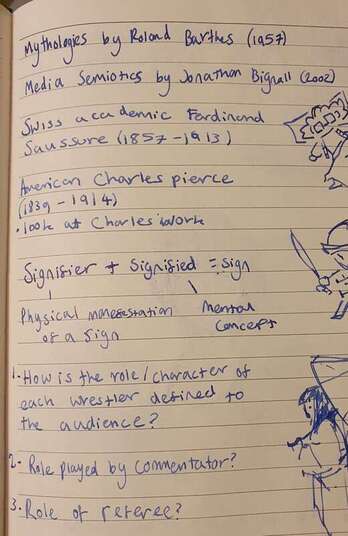 Mythologies by Roland Barthes (1957)
Media Semiotics by Jonathan Bignall (2002)
Swiss academic Ferdinand
Saussure (1857-1913)
American Charles pierce
(1839-1914)
• look at Charles' work
Signifier + Signified = Sign
Physical manefestation
of a sign
Mental
Concept
1. How is the role/character of
each wrestler defined to
the audience?
2- Role played by commentator?
3. Role of referee?